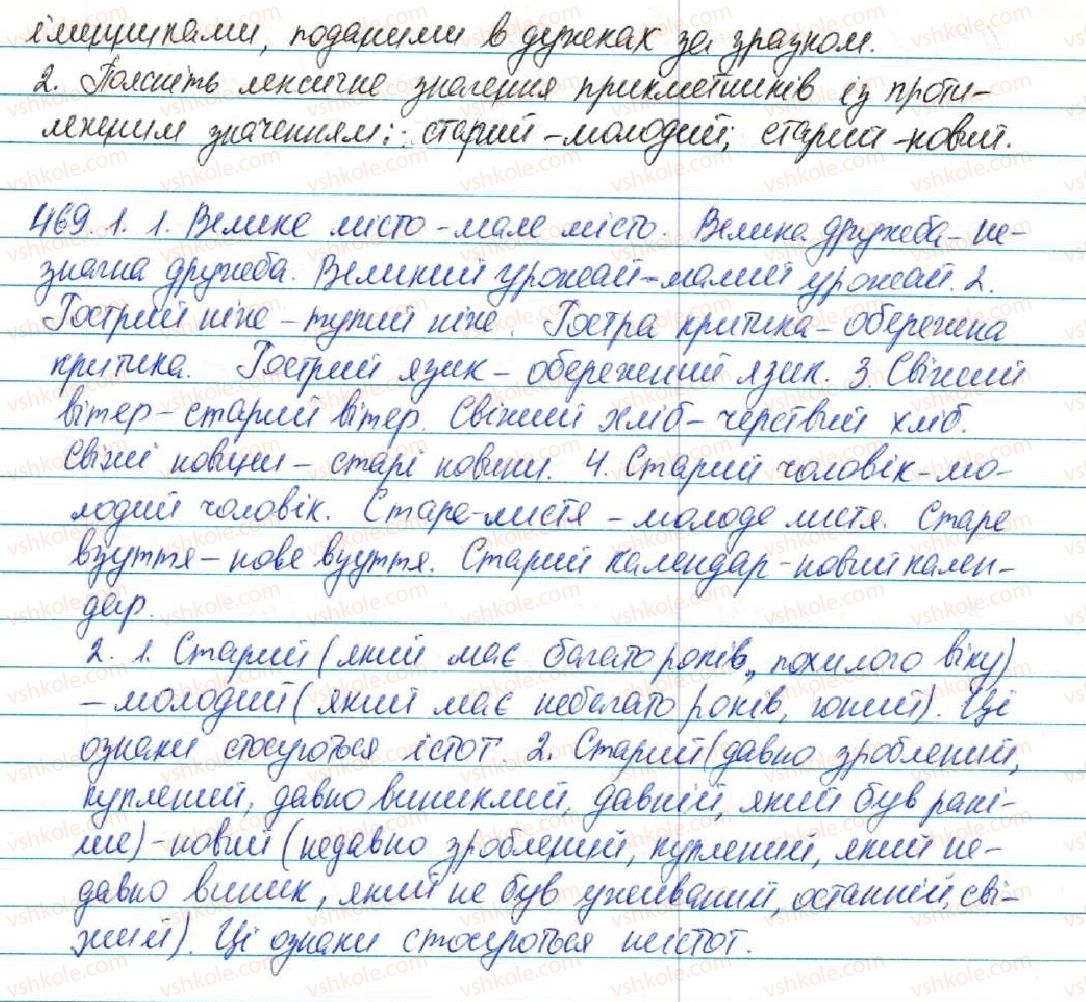 іменниками, поданими в дужках за зразком.
2. Поясніть лексичне значення прикметників із проти-
лежним значенням: старий – молодий; старий – новий.
469. 1. 1. Велике місто – мале місто. Велика дружба – не-
значна дружба. Великий урожай – малий урожай. 2.
Гострий ніж – тупий ніж. Гостра критика – обережна
критика. Гострий язик – обережний язик. 3. Свіжий
вітер – старий вітер. Свіжий хліб – черствий хліб.
Свіжі новини – старі новини. 4. Старий чоловік – мо-
лодий чоловік. Старе листя – молоде листя. Старе
взуття – нове взуття. Старий календар – новий кален-
дар.
2. 1. Старий (який має багато років, похилого віку)
– молодий (який має небагато років, юний). Ці
ознаки стосуються істот. 2. Старий (давно зроблений,
куплений, давно виниклий, давній, який був рані-
ше) – новий (недавно зроблений, куплений, який не-
давно виник, який не був уживаний, останній, сві-
жий). Ці ознаки стосуються неістот.